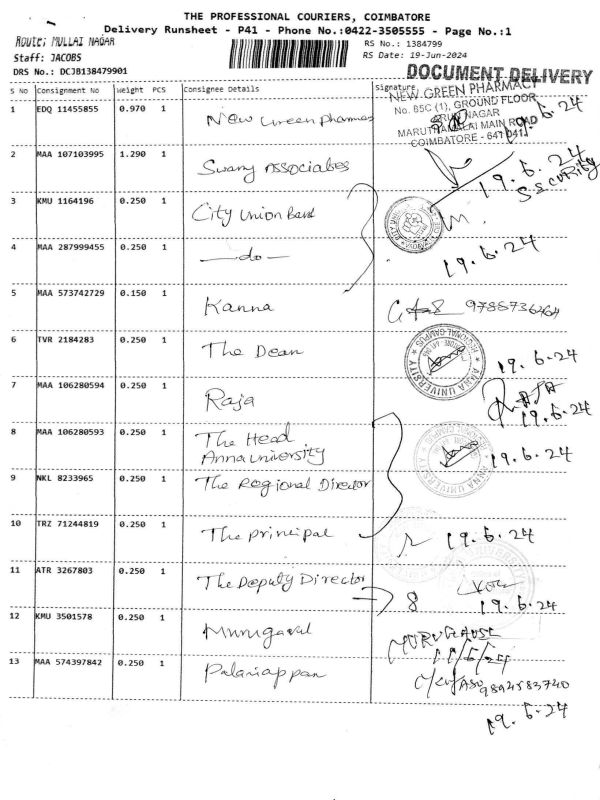 THE PROFESSIONAL COURIERS, COIMBATORE
Delivery Runsheet - P41 - Phone No.:0422-3505555 - Page No.:1
Route: MULLAI NAGAR
RS No.: 1384799
Staff: JACOBS
RS Date: 19-Jun-2024
DRS No.: DCJB138479901
DOCUMENT DELIVERY
S No Consignment No Weight PCS Consignee Details Signature
NEW GREEN PHARMACY
No. 85C (1), GROUND FLOOR
NAGAR
MARUTHAMALAI MAIN ROAD
COIMBATORE - 641 041
1 EDQ 11455855 0.970 1 New Green Pharmacy 19.6.24
2 MAA 107103995 1.290 1 Swamy Associates 19.6.24
Security
3 KMU 1164196 0.250 1 City Union Bank
4 MAA 287999455 0.250 1 —do— 19.6.24
5 MAA 573742729 0.150 1 Kanna
6 TVR 2184283 0.250 1 The Dean 19.6.24
ANNA UNIVERSITY
REGIONAL CAMPUS
7 MAA 106280594 0.250 1 Raja RAJA
19.6.24
8 MAA 106280593 0.250 1 The Head
Anna University 19.6.24
ANNA UNIVERSITY
9 NKL 8233965 0.250 1 The Regional Director
10 TRZ 71244819 0.250 1 The principal 19.6.24
11 ATR 3267803 0.250 1 The Deputy Director
8 19.6.24
12 KMU 3501578 0.250 1 Murugavel
19/6/24
13 MAA 574397842 0.250 1 Palaniappan 9894583740
19.6.24